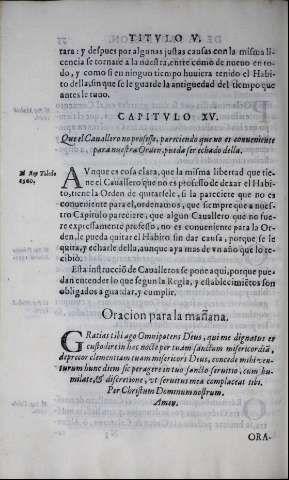 TITVLO V.
tara: y despues por algunas justas causas con la misma li-
cencia se tornare à la nuestra, entre como de nueuo en to-
do, y como si en ninguo tiempo huuiera tenido el Habi-
to della, sin que se le guarde la antiguedad del tiempo que
antes le tuuo.
CAPITVLO XV.
Que el Cauallero no professo, pareciendo que no es conueniente
para nuestra Orden, pueda ser echado della.
Rey Toledo
1560.
AVnque es cosa clara, que la misma libertad que tie-
ne el Cauallero que no es professo de dexar el Habi-
to, tiene la Orden de quitarsele, si la pareciere que no es
conueniente para el, ordenamos, que siempre que a nues-
tro Capitulo pareciere, que algun Cauallero que no fue-
re expressamente professo, no es conueniente para la Or-
den, le pueda quitar el Habito sin dar causa, porque se le
quita, y echarle della, aunque aya mas de vn año que lo re-
cibiò.
Esta instrucciō de Caualleros se pone aqui, porque pue-
dan entender lo que segun la Regla, y establecimiētos son
obligados a guardar, y cumplir.
Oracion para la mañana.
GRatias tibi ago Omnipotens Deus, qui me dignatus es
custodire in hac nocte per tuam sanctam misericordiā,
deprecor clementiam tuam misericors Deus, concede mihi ven-
turum hunc diem sic peragere in tuo sancto seruitio, cum hu-
militate, & discretione, vt seruitus mea complaceat tibi.
Per Christum Dominum nostrum.
Amen.
ORA-